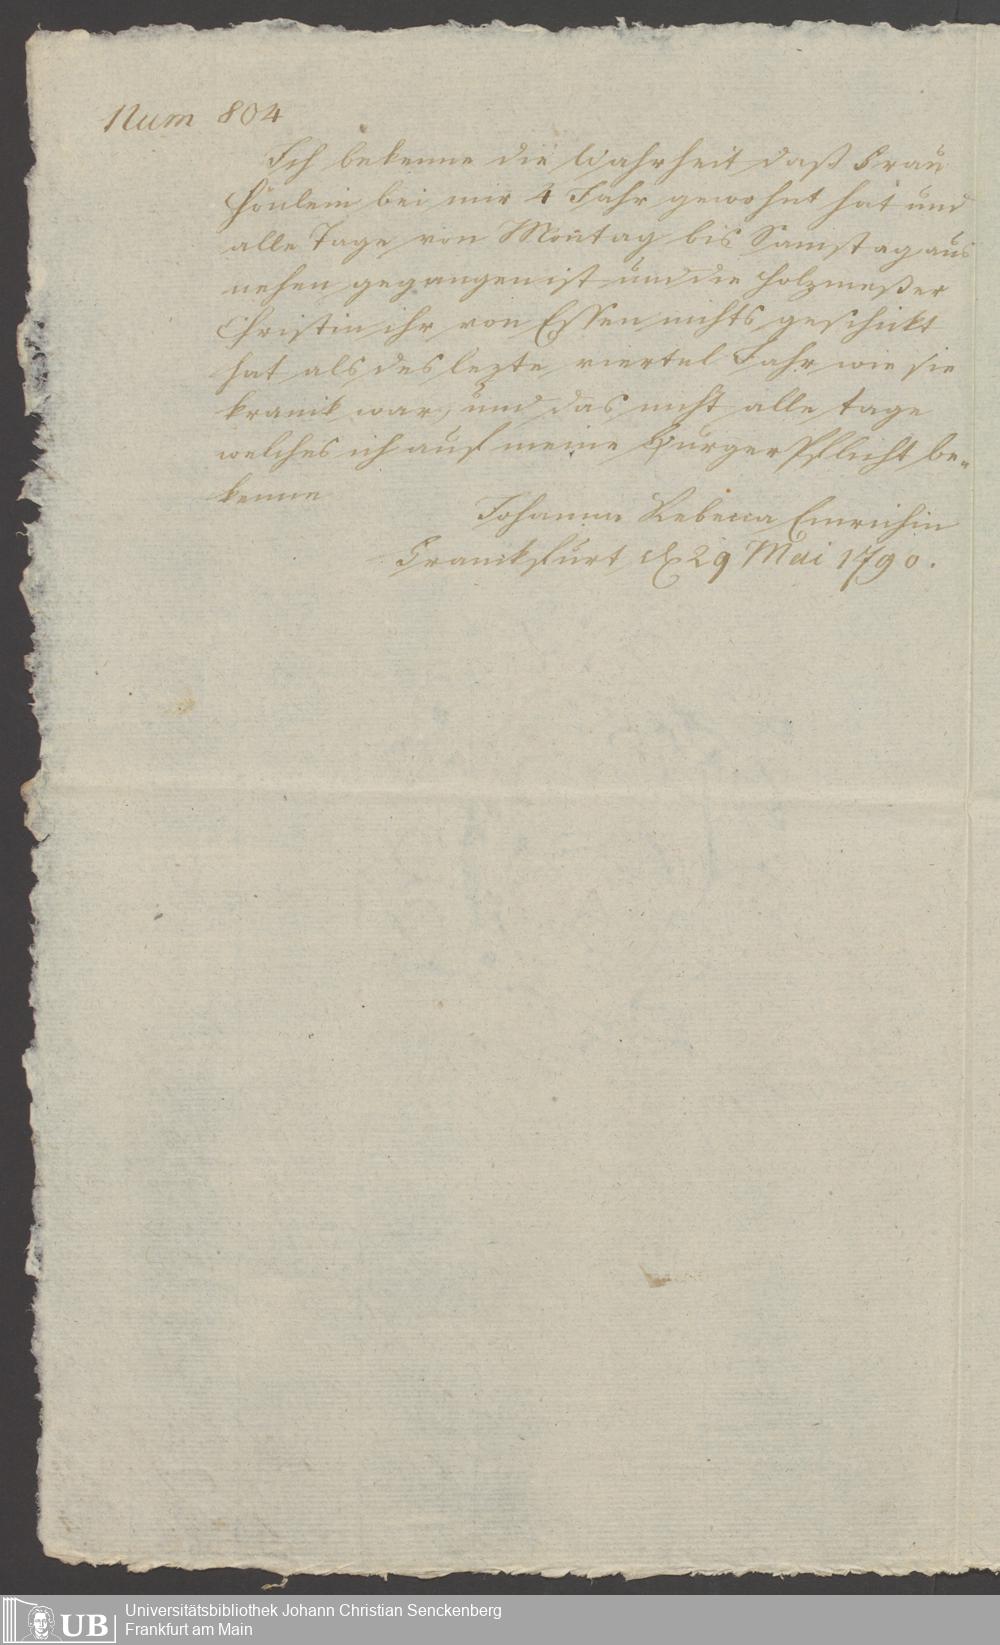 Num 804
Ich bekenne die Wahrheit daß Frau
Hönlein bei mir 4 Jahr gewohnt hat und
alle Tage von Montag bis Samstag aus
nehen gegangen ist und die Holzmeßer
Christin ihr von Essen nichts geschickt
hat als des lezte viertel Jahr wie sie
kranik war, und das nicht alle tage
welches ich auf meine BurgerPflicht be-
kenne
Johanna Rebecca Emrichin
Franckfurt d 29 Mai 1790.
UB
Universitätsbibliothek Johann Christian Senckenberg
Frankfurt am Main